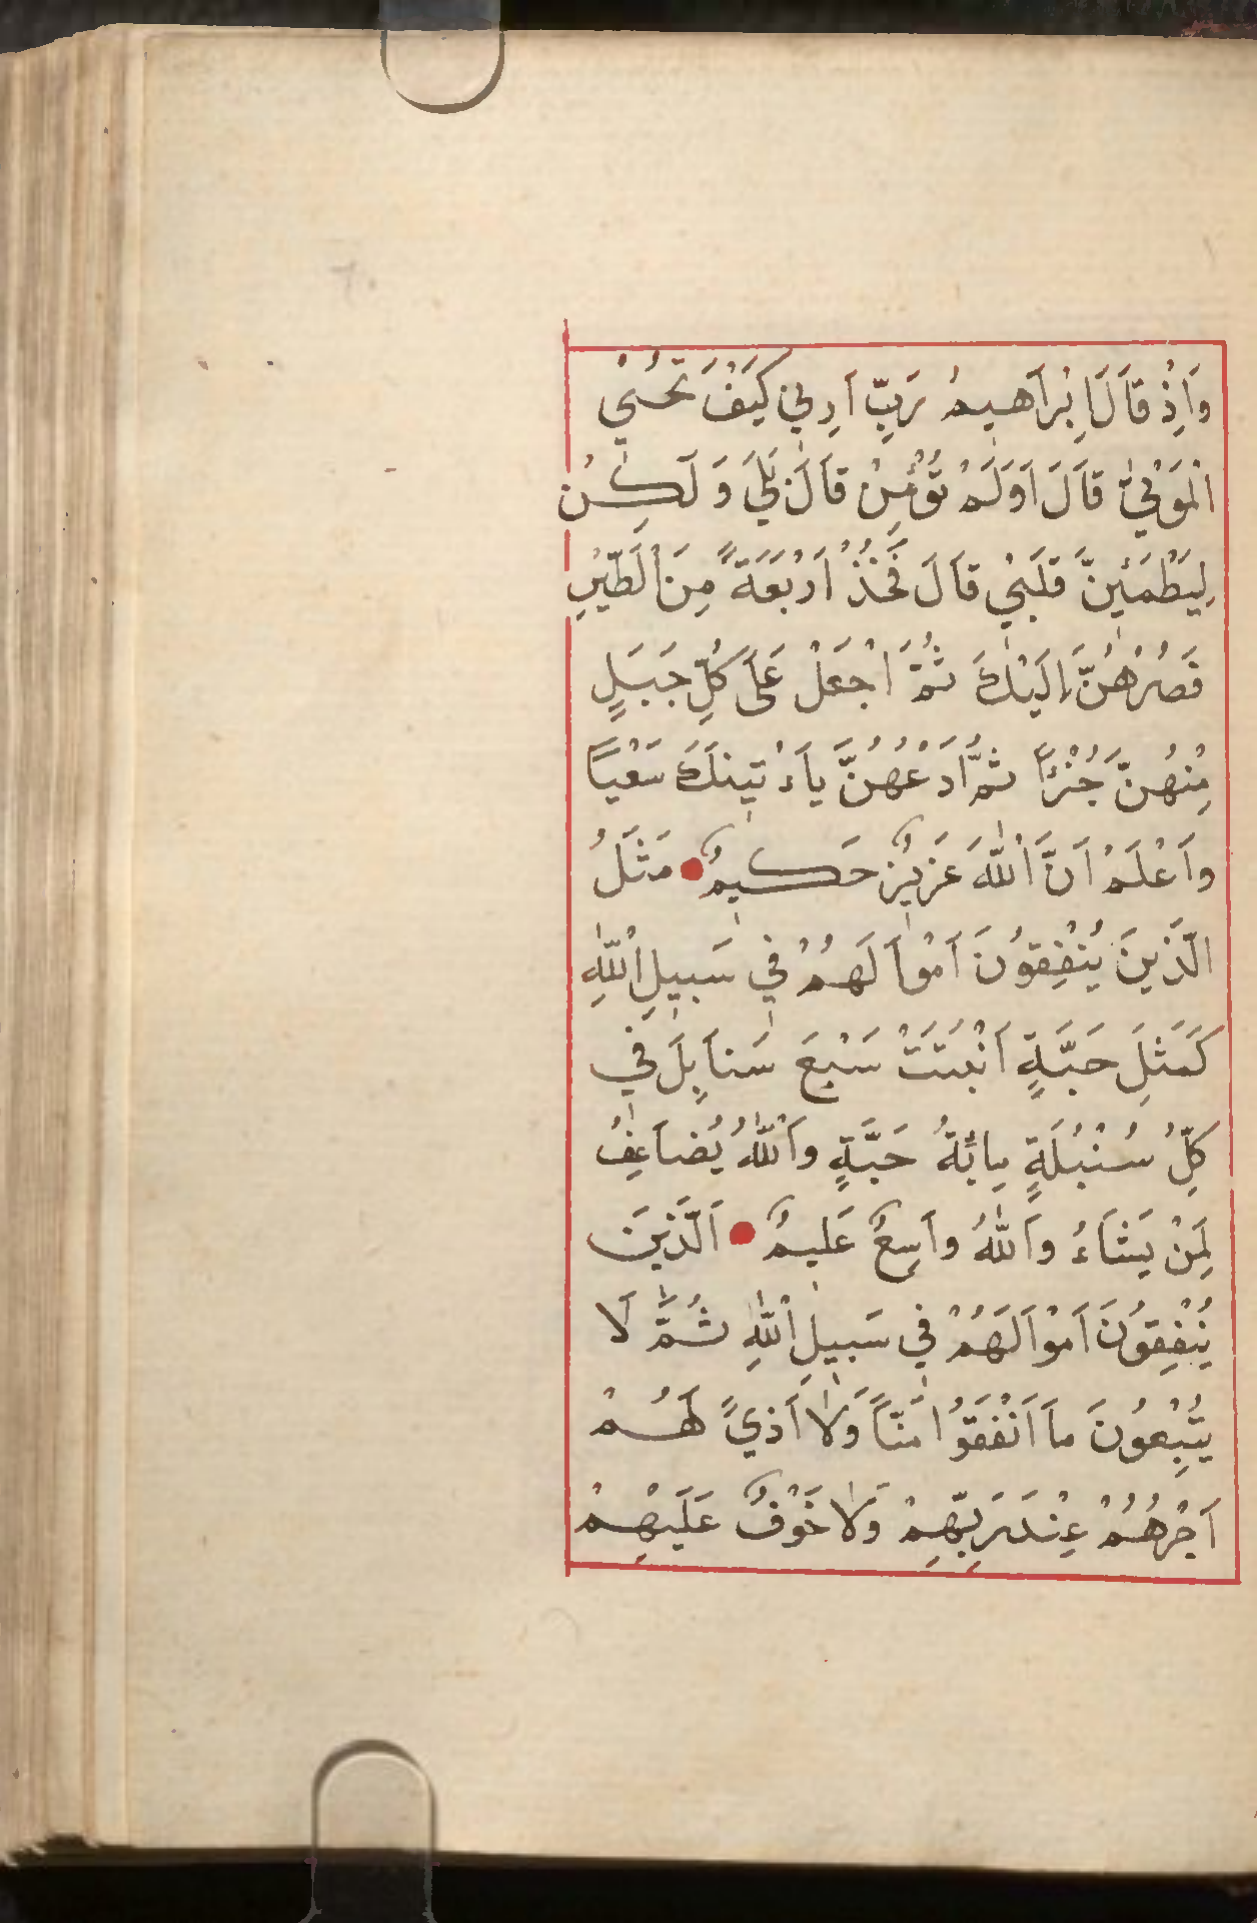 وَاِذْ قَالَ اِبْرَاهيمُ رَبِّ اَرِنِي كَيْفَ تُحْيِي
الْمَوْتٰي قَالَ اَوَلَمْ تُؤْمِنْ قَالَ بَلَي وَلَٰكِنْ
لِيَطْمَئِنَّ قَلْبِي قَالَ فَخُذْ اَرْبَعَةً مِنَ الطَّيْرِ
فَصُرْهُنَّ اِلَيْكَ ثُمَّ اجْعَلْ عَلَى كُلِّ جَبَلٍ
مِنْهُنَّ جُزْءًا ثُمَّ ادْعُهُنَّ يَاءْتِينَكَ سَعْيًا
وَاعْلَمْ اَنَّ اللّٰهَ عَزِيزٌ حَكِيمٌ ● مَثَلُ
الَّذِينَ يُنْفِقُونَ اَمْوَالَهُمْ فِي سَبِيلِ اللّٰهِ
كَمَثَلِ حَبَّةٍ اَنْبَتَتْ سَبْعَ سَنَابِلَ فِي
كُلِّ سُنْبُلَةٍ مِائَةُ حَبَّةٍ وَاللّٰهُ يُضَاعِفُ
لِمَنْ يَشَاءُ وَاللّٰهُ وَاسِعٌ عَلِيمٌ ● اَلَّذِينَ
يُنْفِقُونَ اَمْوَالَهُمْ فِي سَبِيلِ اللّٰهِ ثُمَّ لَا
يُتْبِعُونَ مَا اَنْفَقُوا مَنًّا وَلَا اَذيً لَهُمْ
اَجْرُهُمْ عِنْدَ رَبِّهِمْ وَلَا خَوْفٌ عَلَيْهِمْ